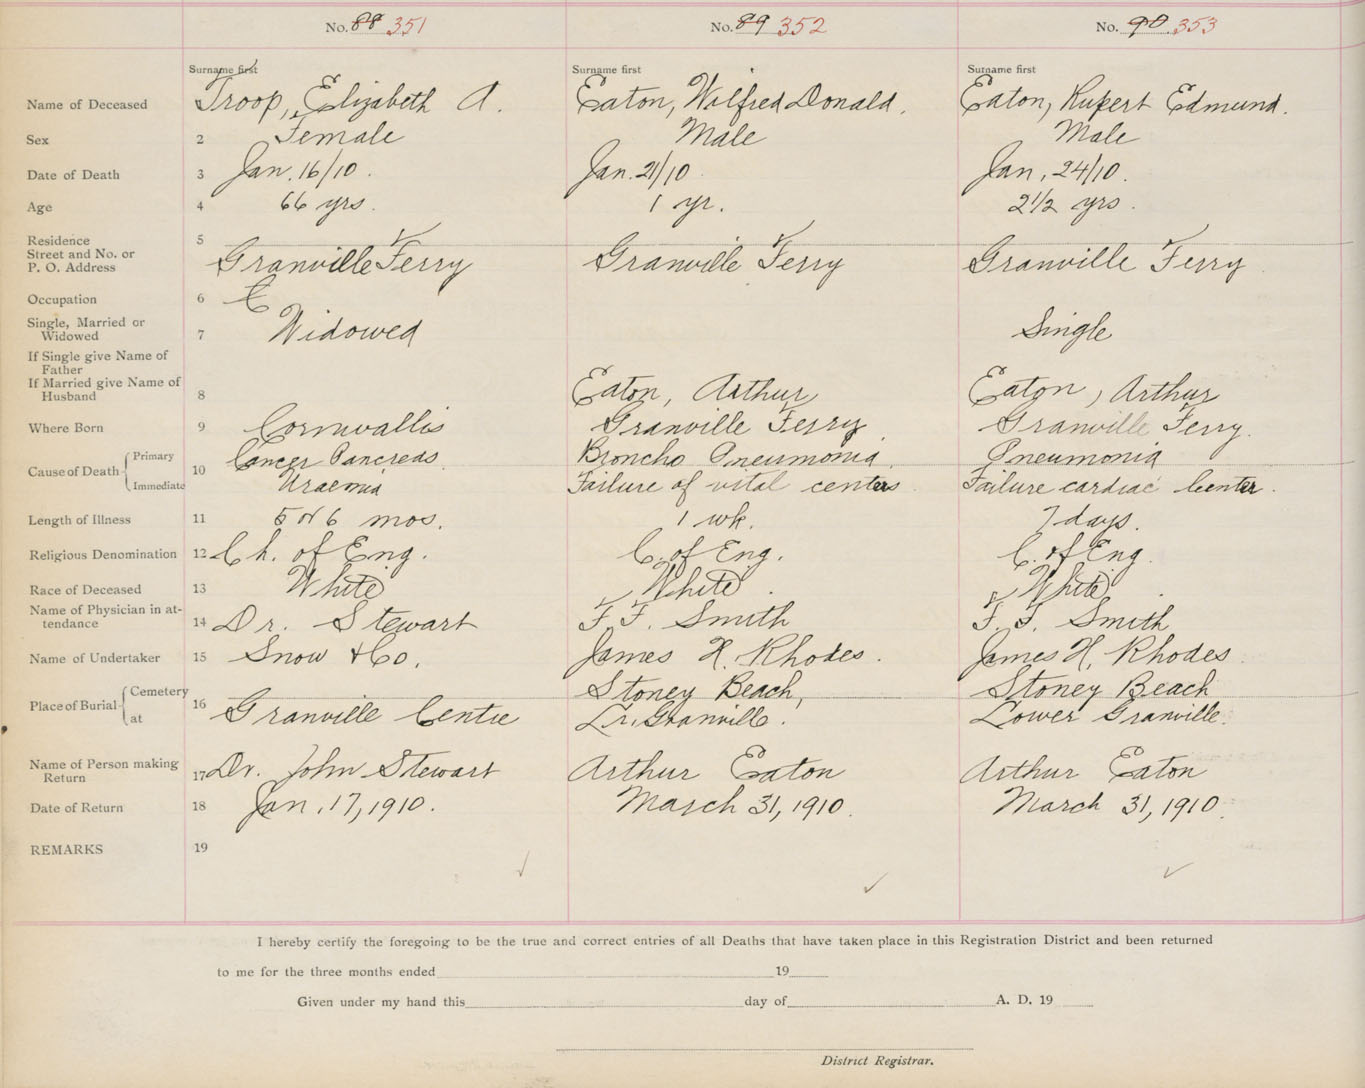 No. 88 351 No. 89 352 No. 90 353
Surname first Surname first Surname first
Name of Deceased Troop, Elizabeth A. Eaton, Wilfred Donald. Eaton, Rupert Edmund.
Sex 2 Female Male Male
Date of Death 3 Jan. 16/10. Jan. 21/10 Jan, 24/10.
Age 4 66 yrs. 1 yr. 2 1/2 yrs.
Residence 5
Street and No. or
P. O. Address Granville Ferry Granville Ferry Granville Ferry
Occupation 6
Single, Married or
Widowed 7 Widowed Single
If Single give Name of
Father
If Married give Name of
Husband 8 Eaton, Arthur Eaton, Arthur
Where Born 9 Cornwallis Granville Ferry, Granville Ferry.
Cause of Death Primary 10 Cancer Pancreas. Broncho Pneumonia. Pneumonia
Immediate Uraemia Failure of vital centers Failure cardiac center.
Length of Illness 11 5 or 6 mos. 1 wk. 7 days.
Religious Denomination 12 Ch. of Eng. C. of Eng. C. of Eng.
Race of Deceased 13 White White. White.
Name of Physician in at-
tendance 14 Dr. Stewart F. F. Smith F. F. Smith
Name of Undertaker 15 Snow & Co. James H. Rhodes. James H. Rhodes.
Place of Burial Cemetery 16 Stoney Beach, Stoney Beach
at Granville Centre Lr. Granville. Lower Granville.
Name of Person making
Return 17 Dr. John Stewart Arthur Eaton Arthur Eaton
Date of Return 18 Jan. 17, 1910. March 31, 1910. March 31, 1910.
REMARKS 19
I hereby certify the foregoing to be the true and correct entries of all Deaths that have taken place in this Registration District and been returned
to me for the three months ended 19
Given under my hand this day of A. D. 19
District Registrar.